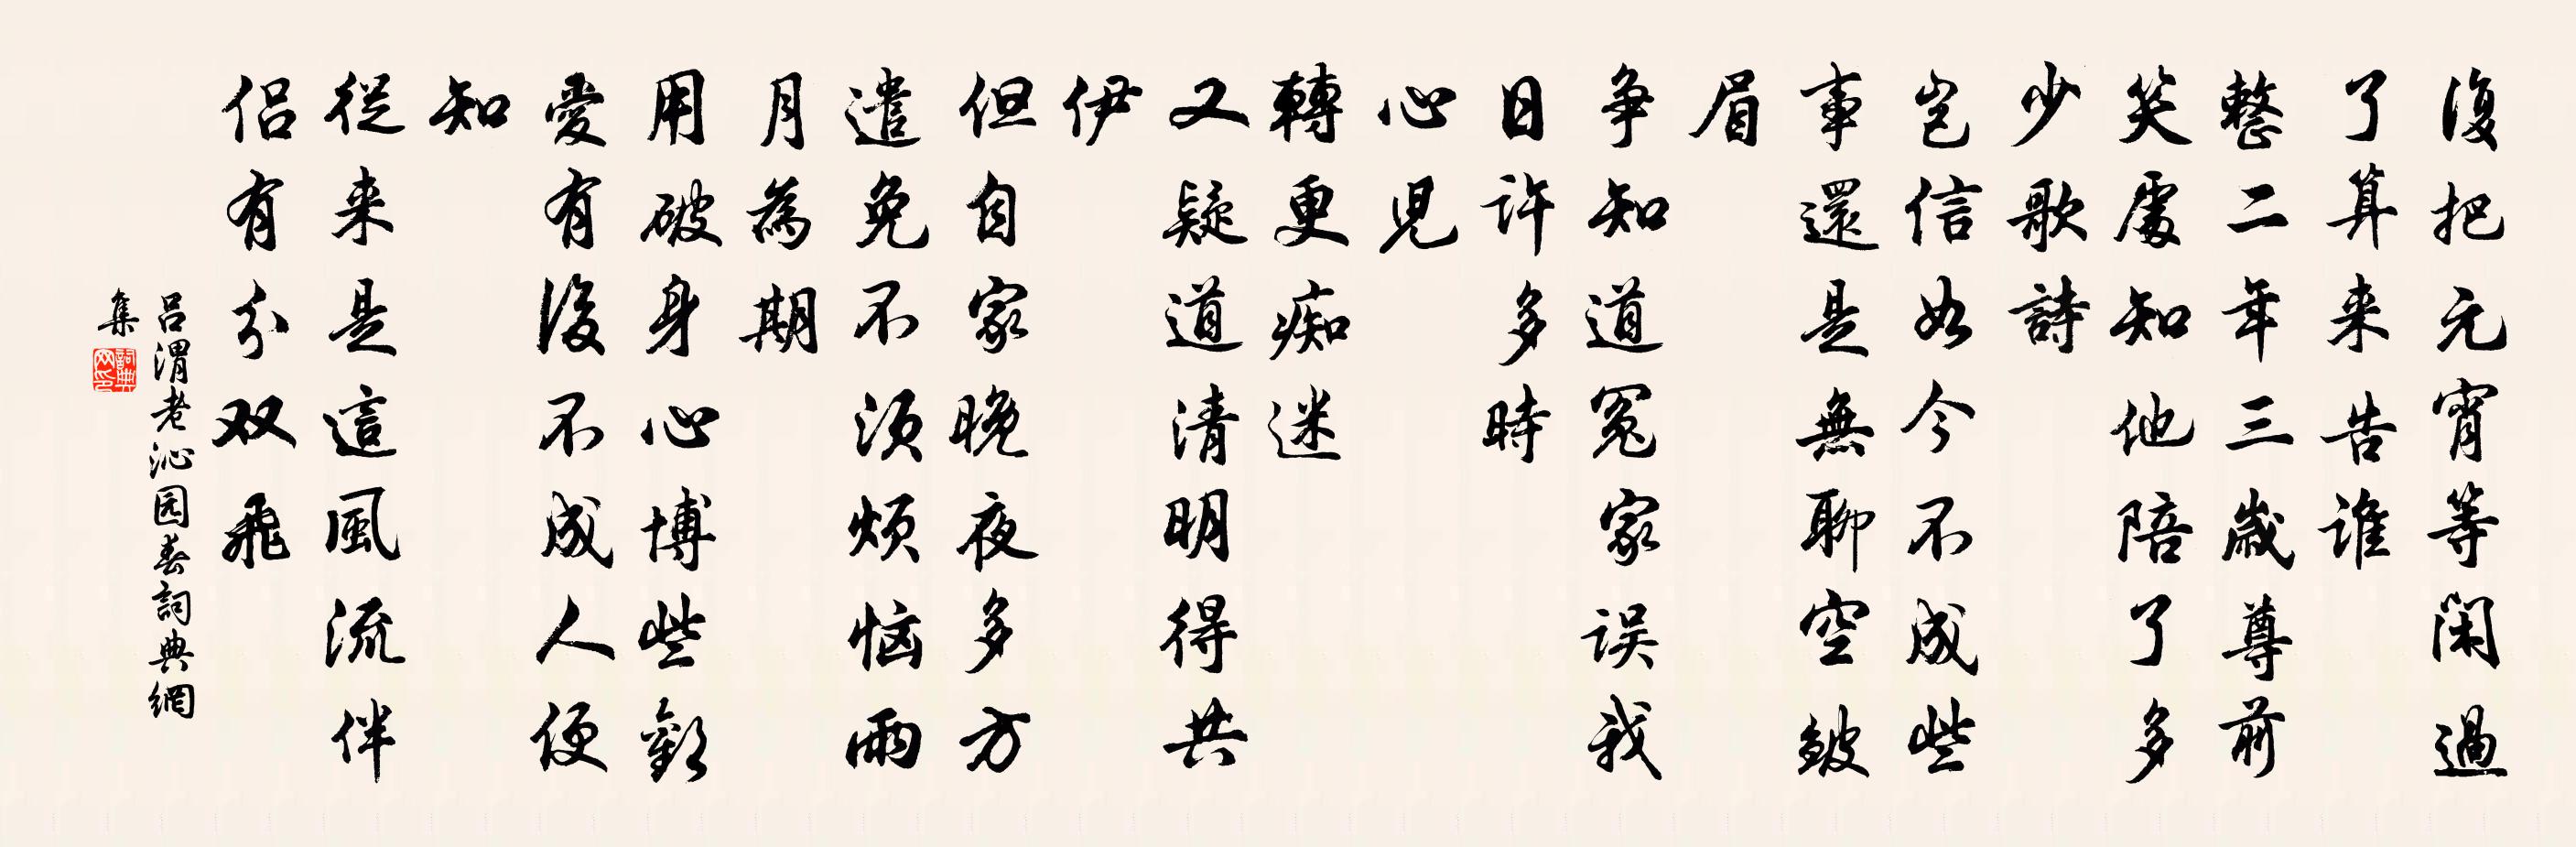 復把元宵等闲過
了算来告谁
整二年三歲尊前
笑處知他陪了多
少歌詩
岂信如今不成些
事還是無聊空皱
眉
争知道冤家误我
日许多時
心児
轉更痴迷
又疑道清明得共
伊
但自家晚夜多方
遣免不须烦恼雨
月為期
用破身心博些歡
愛有後不成人便
知
從来是這風流伴
侣有分双飛
吕渭老沁园春詞典網
集
詞典网印